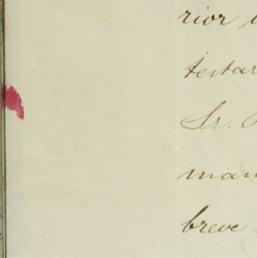 rior
testar
Sr.
man
breve